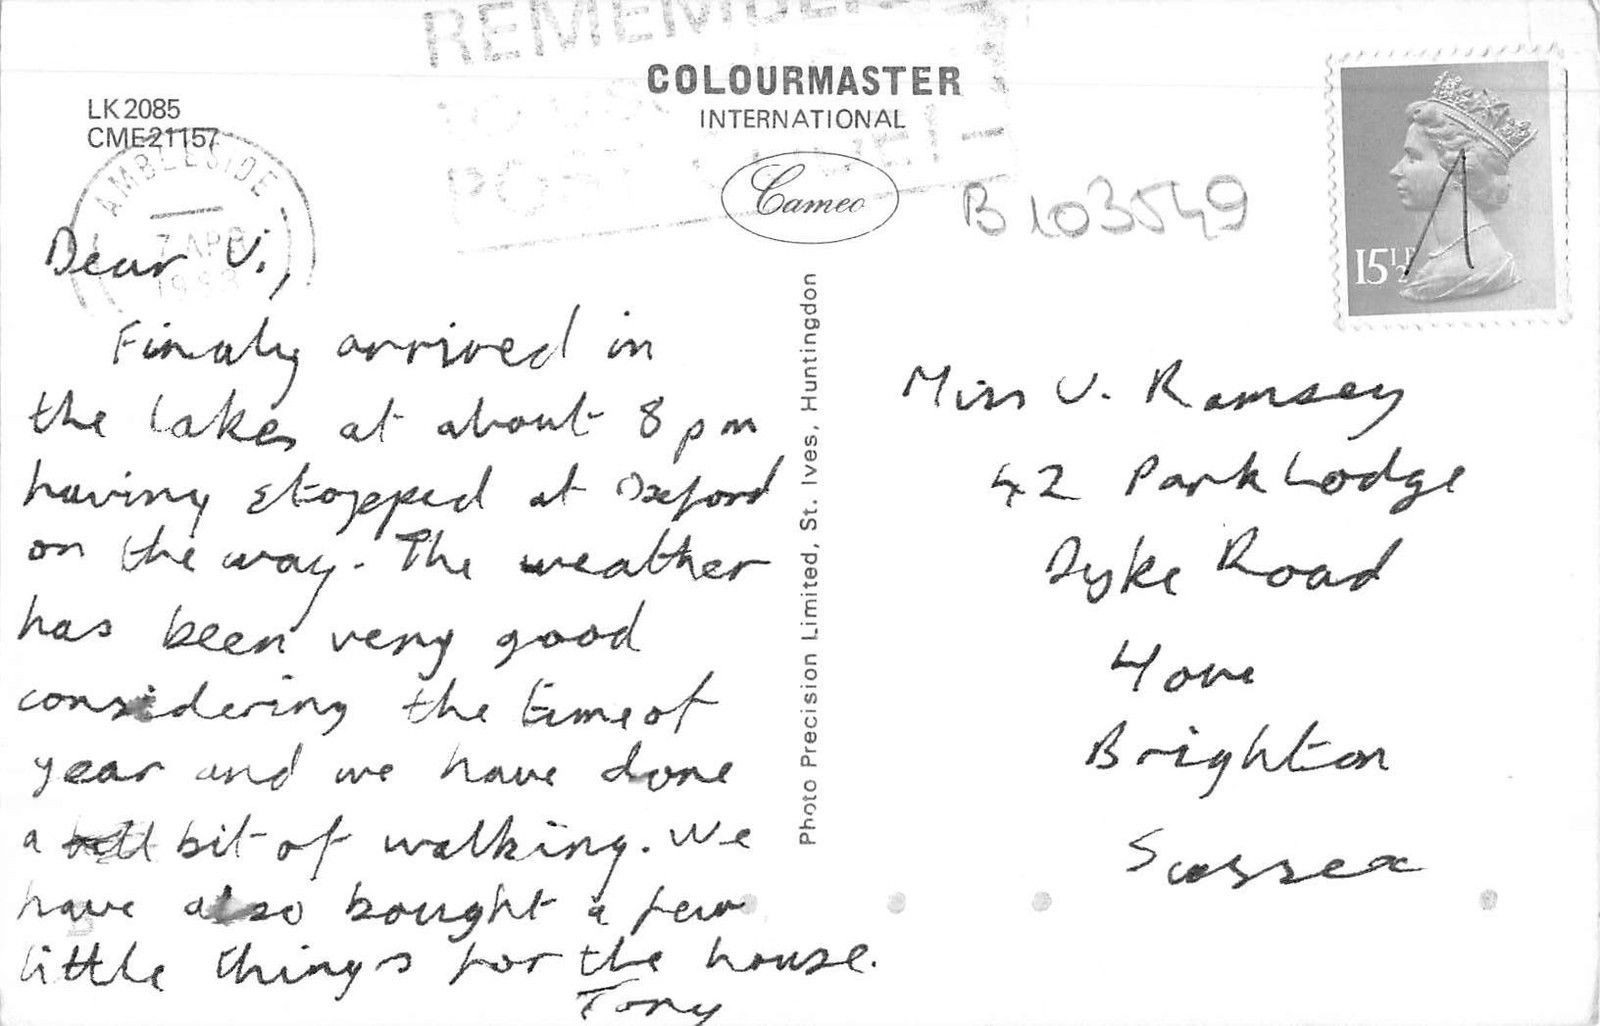 REMEMBER
COLOURMASTER
INTERNATIONAL
LK 2085
CME21157
AMBLESIDE
7 APR
1983
Cameo
B103549
15½P
Dear V.,
Finaly arrived in
the Lakes at about 8 pm
having stopped at Oxford
on the way. The weather
has been very good
considering the time of
year and we have done
a bit of walking. We
have also bought a few
little things for the house.
Tony
Photo Precision Limited, St. Ives, Huntingdon
Miss V. Ramsey
42 Park Lodge
Dyke Road
Hove
Brighton
Sussex